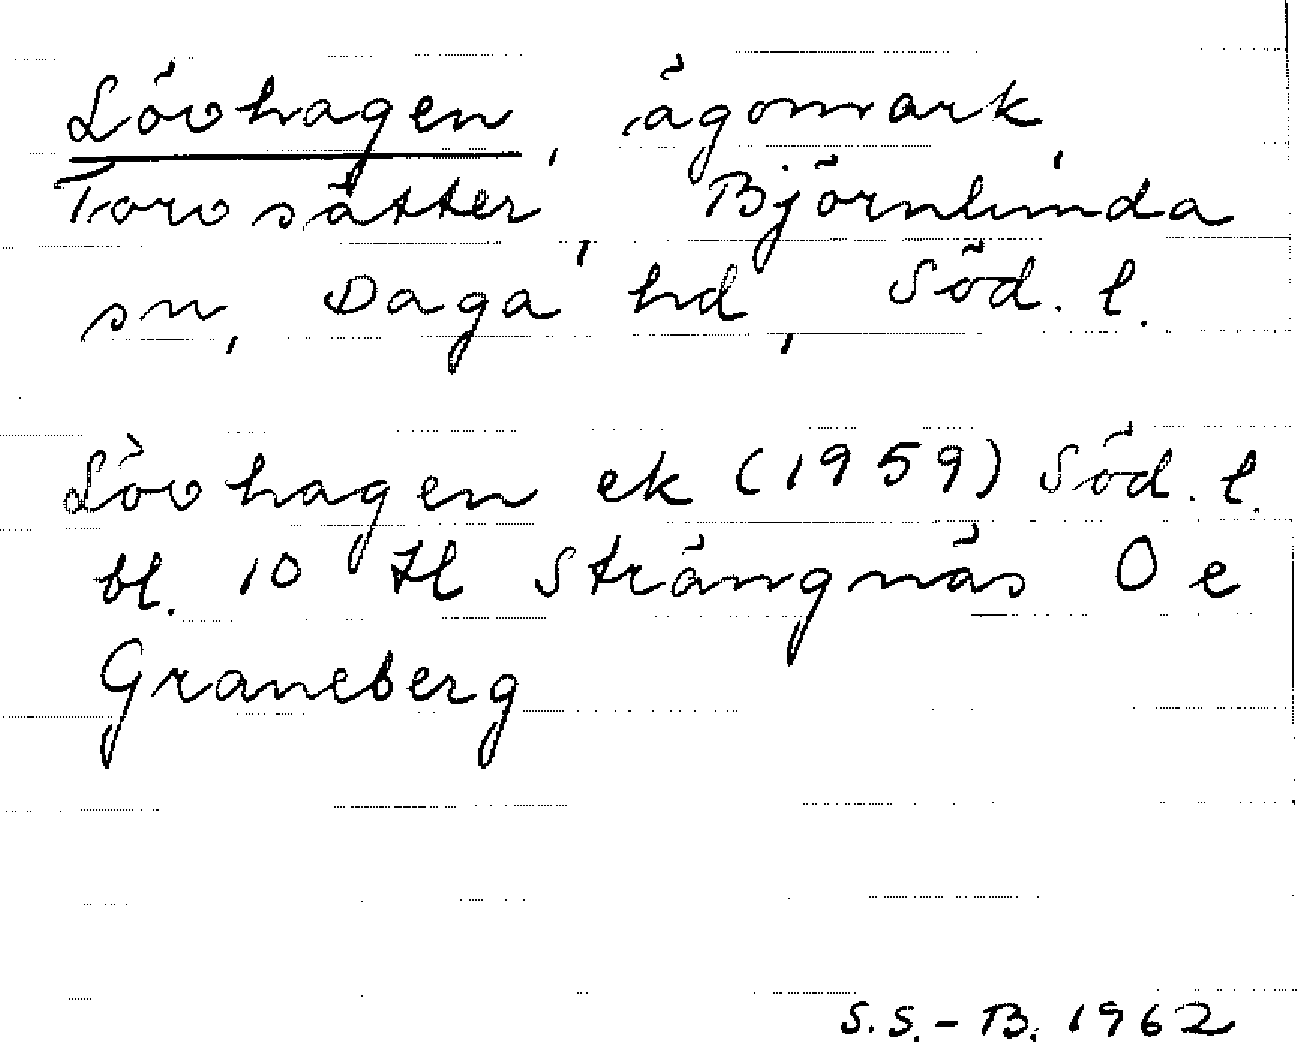 Lövhagen, ägomark,
Torvsätter, Björnlunda
sn, Daga hd, Söd. l.
Lövhagen ek (1959) Söd. l.
bl. 10 Hl Strängnäs O e
Graneberg
S.S.-B. 1962